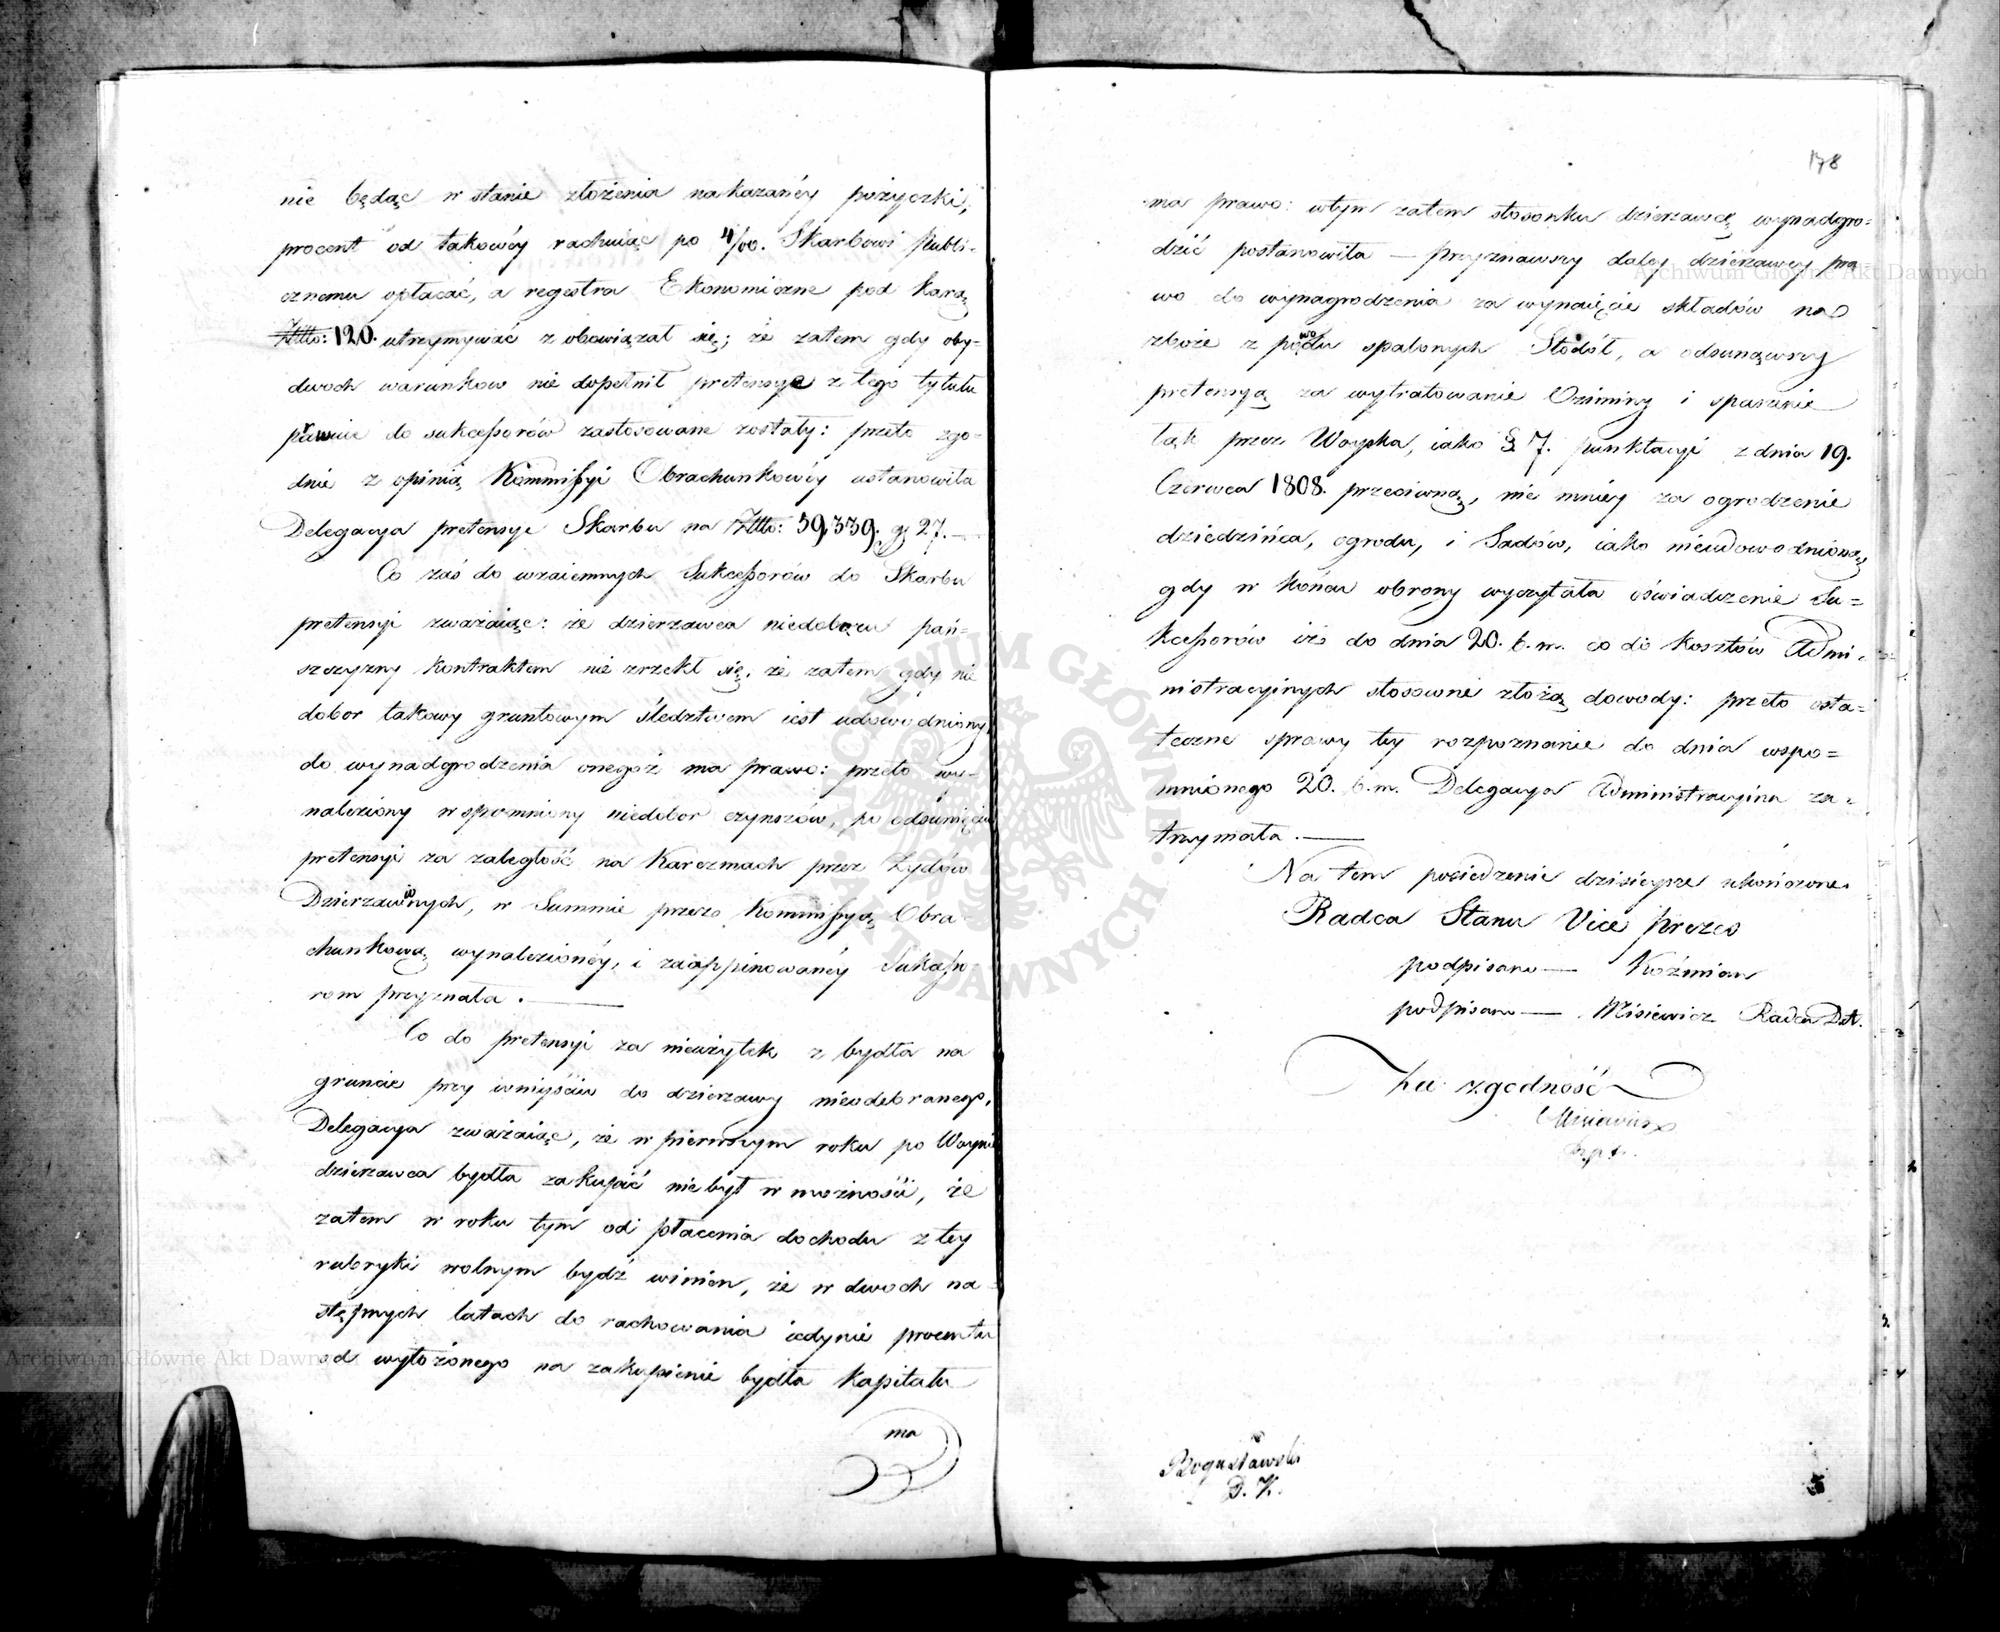 nie będąc w stanie złożenia nakazanéy pożyczki,
procent od takowéy rachuiąc po 4/00. Skarbowi Publi-
cznemu opłacać, a regestra Ekonomiczne pod karą
Złłto: 120. utrzymywać zobowiązał się; że zatem gdy oby-
dwoch warunkow nie dopełnił pretensye z tego tytułu
prawnie do sukceßorów zastosowane zostały: przeto zgo-
dnie z opinią Kommißyi Obrachunkowéy ustanowiła
Delegacya pretensye Skarbu na Złłto: 59,339. g. 27. —
Co zaś do wzaiemnych Sukceßorów do Skarbu
pretensyi zważaiąc: że dzierzawca niedoboru pań-
szczyzny kontraktem nie zrzekł się, że zatem gdy nie
dobor takowy gruntowym śledztwem iest udowodniony,
do wynadgrodzenia onegoż ma prawo: przeto wy-
naleziony wspomniony niedobor czynszów, po odsunięciu
pretensyi za zaległość na Karczmach przez Żydów
Dzierzawnych, w Summie przez Kommißyą Obra-
chunkową wynalezionéy, i zaoppinowanéy Sukceßo-
rom przyznała. —
Co do pretensyi za nieużytek z bydła na
gruncie przy weniyściu do dzierzawy nieodebranego,
Delegacya zważaiąc, że w pierwszym roku po Woynie
dzierzawca bydła zakupić nie był w możności, że
zatem w roku tym od płacenia dochodu z tey
rubryki wolnym bydź winien, że w dwoch na-
stępnych latach do rachowania iedynie procentu
od wyłożonego na zakupienie bydła kapitału
ma
178
ma prawo: w tym zatem stosonku dzierzawcę wynadgro-
dzić postanowiła — przyznawszy daley dzierzawcy pra-
wo do wynagrodzenia za wynaięcie składów na
zboże z powodu spalonych Stodół, a odsunąwszy
pretensyą za wytratowanie Oziminy i spasienie
łąk przez Woyska, iako § 7. punktacyi z dnia 19.
Czerwca 1808. przeciwną, nie mniey za ogrodzenie
dziedzińca, ogrodu, i Sadów, iako nieudowodnioną,
gdy w końcu obrony wyczytała oświadczenie Su-
kceßorów iż do dnia 20. b.m. co do kosztów Admi-
nistracyinych stosowne złożą dowody: przeto osta-
teczne sprawy tey rozpoznanie do dnia wspo-
mnionego 20. b.m. Delegacya Administracyina za-
trzymała. —
Na tem posiedzenie dzisieysze ukończone.
Radca Stanu Vice Prezes
podpisano — Koźmian
podpisano — Misiewicz Radca Dsk.
Za zgodność
Misiewicz
Bogusławski
D. K.
Archiwum Główne Akt Dawnych
Archiwum Główne Akt Dawnych
ARCHIWUM GŁÓWNE AKT DAWNYCH